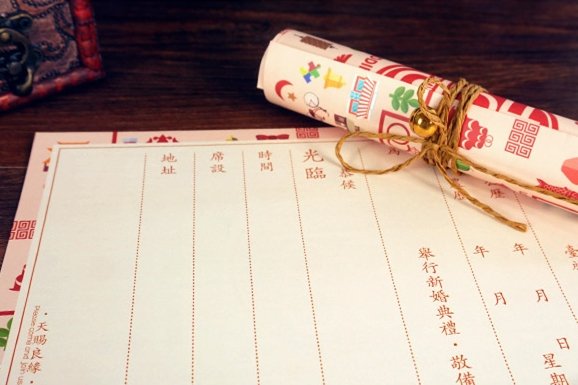 曆 年 月 日 星期
曆 年 月
舉行新婚典禮・敬備
恭候
光臨
時間
席設
地址
・天賜良緣・
Please come and join us